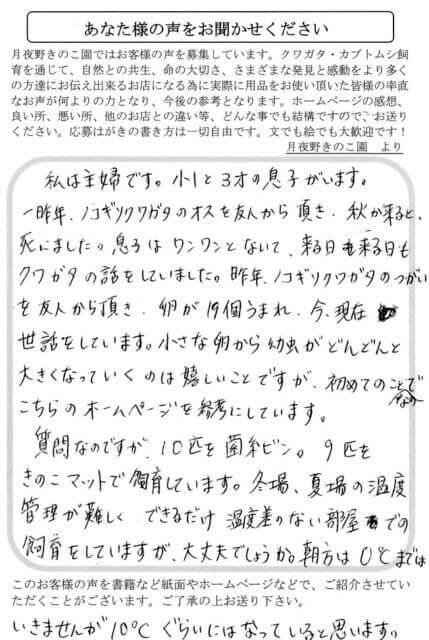 あなた様の声をお聞かせください
月夜野きのこ園ではお客様の声を募集しています。クワガタ・カブトムシ飼
育を通じて、自然との共生、命の大切さ、さまざまな発見と感動をより多く
の方達にお伝え出来るお店になる為に実際に用品をお使い頂いた皆様の率直
なお声が何よりの力となり、今後の参考となります。ホームページの感想、
良い所、悪い所、他のお店との違い等、どんな事でも結構ですので、お送り
ください。応募はがきの書き方は一切自由です。文でも絵でも大歓迎です！
月夜野きのこ園　より
私は主婦です。小1と3才の息子がいます。
一昨年、ノコギリクワガタのオスを友人から頂き、秋が来ると、
死にました。息子はワンワンとないて、来る日も来る日も
クワガタの話をしていました。昨年、ノコギリクワガタのつがい
を友人から頂き、卵が19個うまれ、今、現在
世話をしています。小さな卵から幼虫がどんどんと
大きくなっていくのは嬉しいことですが、初めてのことなので
こちらのホームページを参考にしています。
質問なのですが、10匹を菌糸ビン。9匹を
きのこマットで飼育しています。冬場、夏場の温度
管理が難しく できるだけ 温度差のない部屋での
飼育をしていますが、大丈夫でしょうか。朝方は0℃までは
このお客様の声を書籍など紙面やホームページなどで、ご紹介させてい
ただくことがございます。ご了承の上お送り下さい。
いきませんが10℃ぐらいにはなっていると思います。